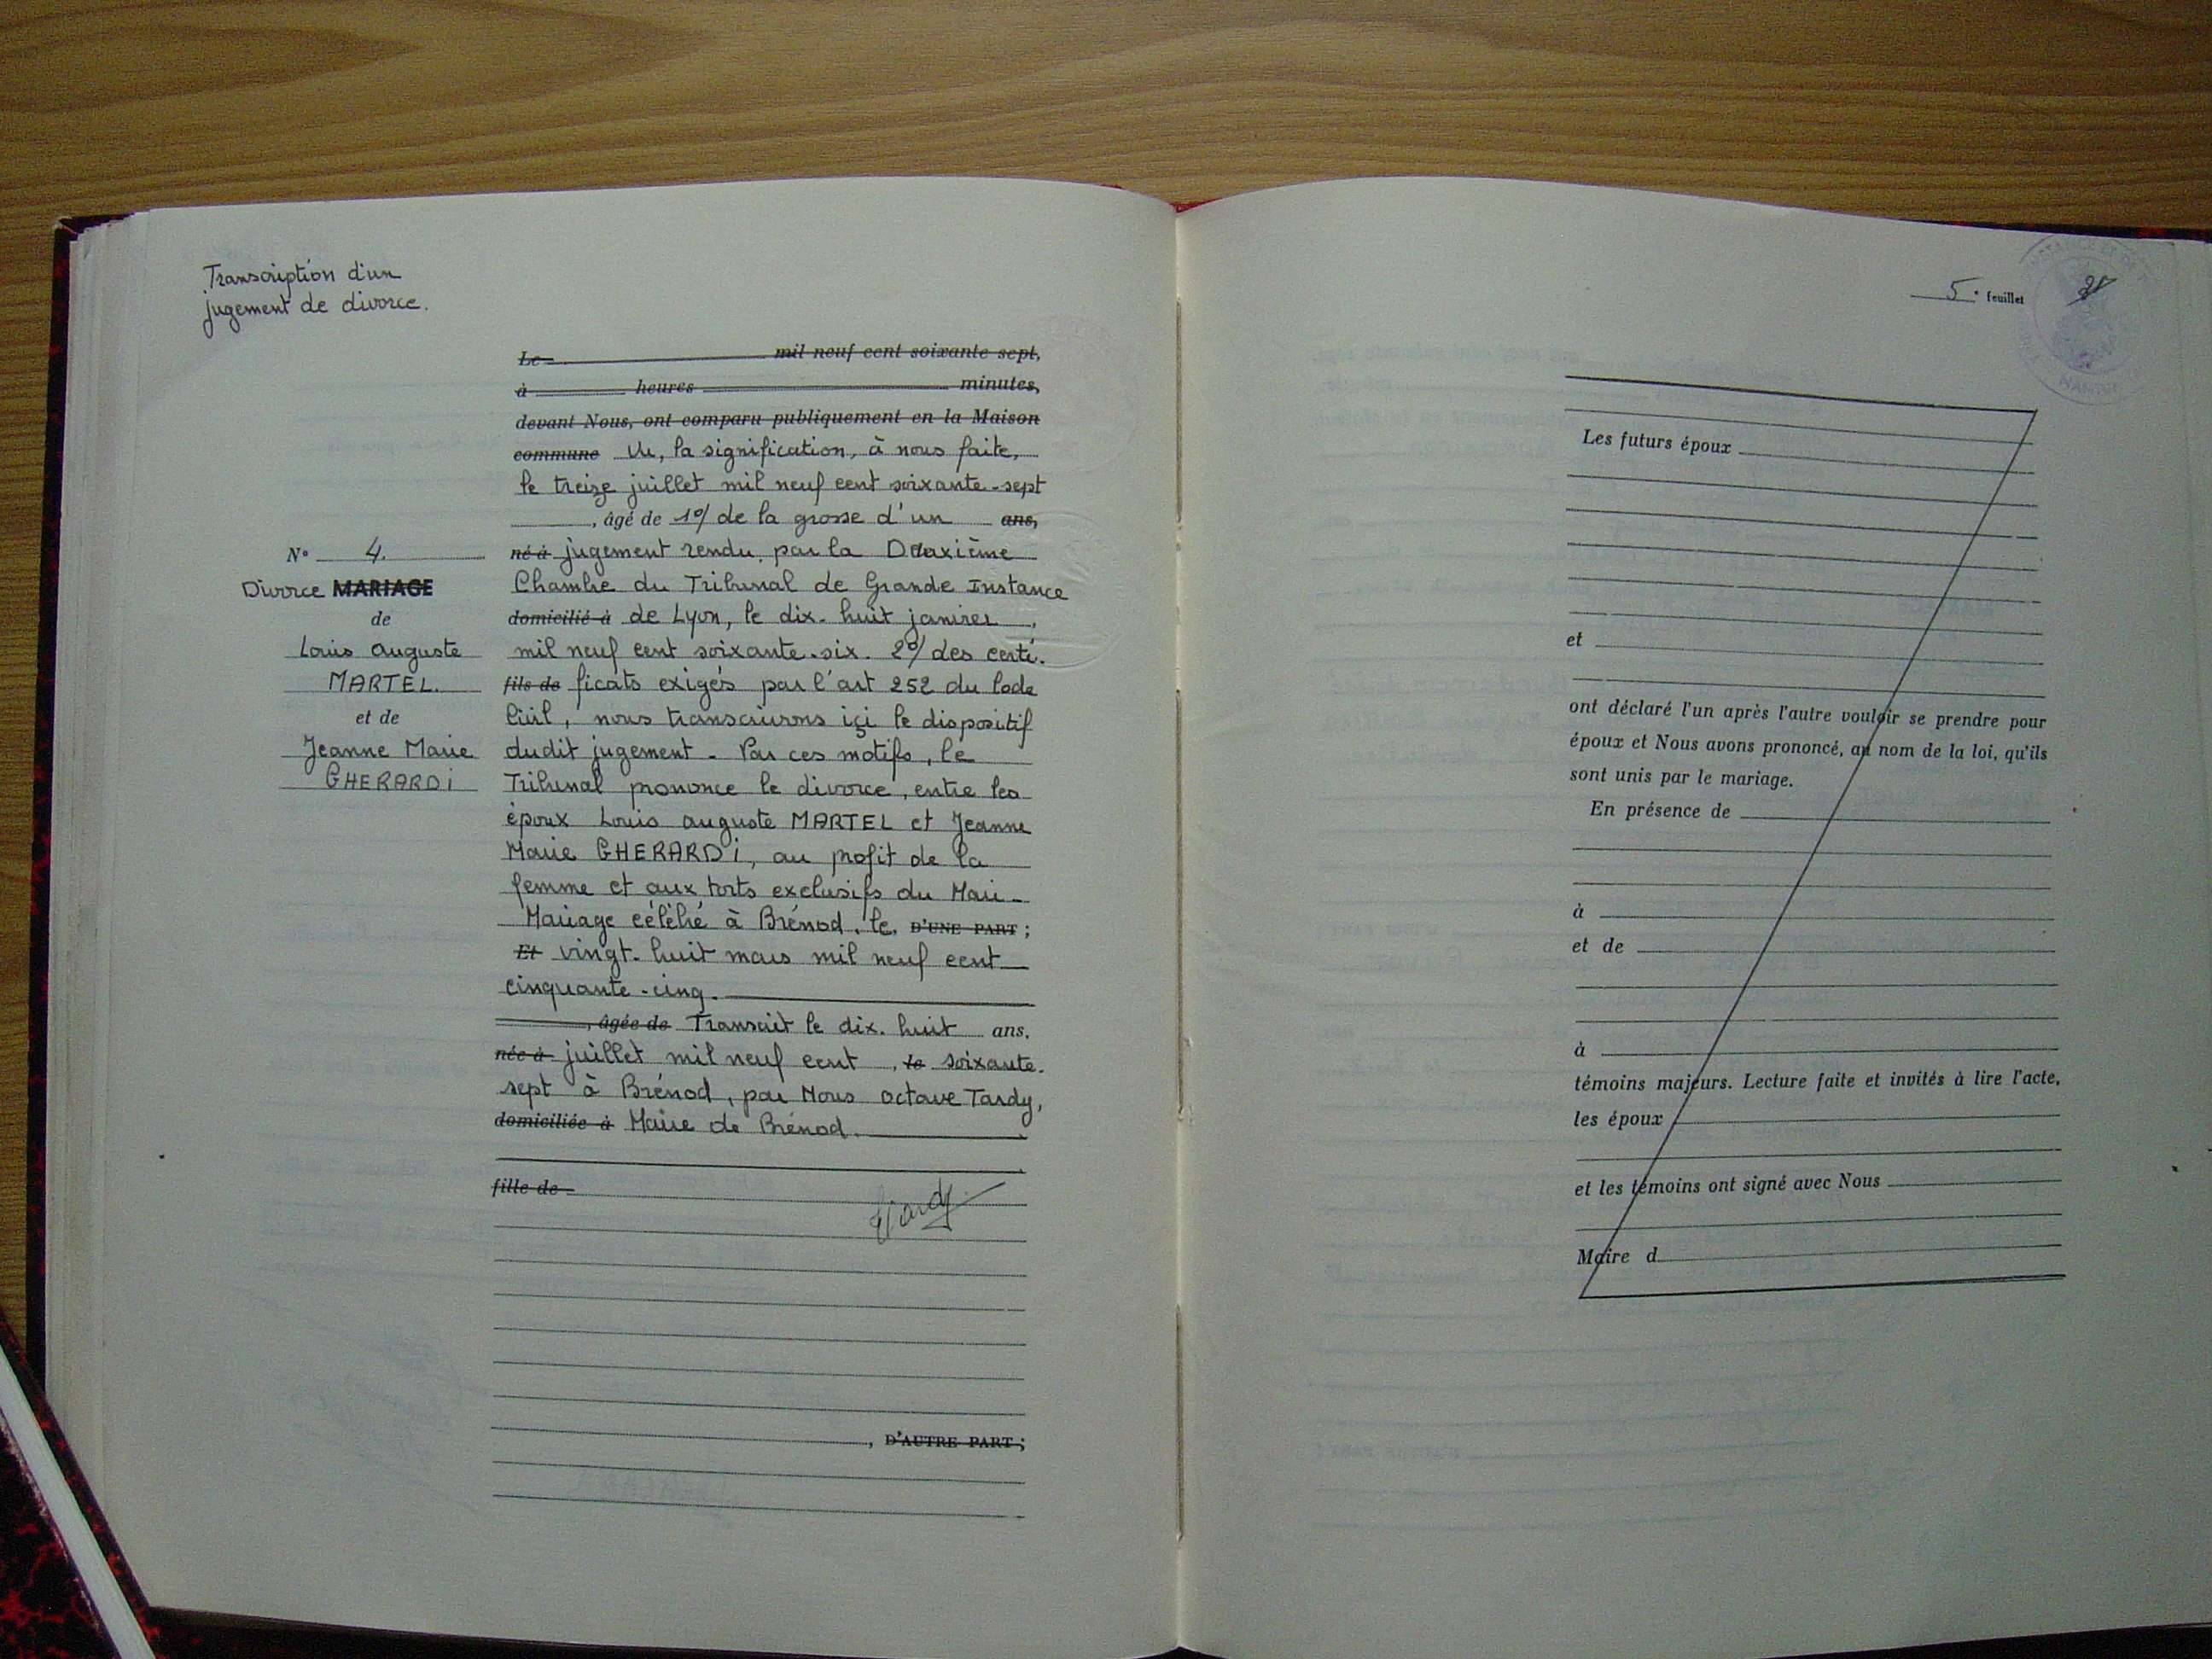 Transcription d'un
jugement de divorce.
Le mil neuf cent soixante sept,
à heures minutes,
devant Nous, ont comparu publiquement en la Maison
commune Vu, la signification, à nous faite,
le treize juillet mil neuf cent soixante-sept
, âgé de 1º/ de la grosse d'un ans,
né à jugement rendu par la Deuxième
Chambre du Tribunal de Grande Instance
domicilié à de Lyon, le dix-huit janvier,
mil neuf cent soixante-six. 2º/ des certi-
fils de ficats exigés par l'art 252 du Code
Civil, nous transcrivons içi le dispositif
dudit jugement - Par ces motifs, le
Tribunal prononce le divorce, entre les
époux Louis Auguste MARTEL et Jeanne
Marie GHERARDi, au profit de la
femme et aux torts exclusifs du Mari -
Mariage célébré à Brénod, le, D'UNE PART ;
Et vingt-huit mars mil neuf cent
cinquante-cinq.
, âgée de Transcrit le dix-huit ans.
née à juillet mil neuf cent, le soixante-
sept à Brénod, par Nous Octave Tardy,
domiciliée à Maire de Brénod.
fille de
Tardy
, D'AUTRE PART ;
Nº 4.
Divorce MARIAGE
de
Louis Auguste
MARTEL.
et de
Jeanne Marie
GHERARDi
5e feuillet
NANTUA
Les futurs époux
et
ont déclaré l'un après l'autre vouloir se prendre pour
époux et Nous avons prononcé, au nom de la loi, qu'ils
sont unis par le mariage.
En présence de
à
et de
à
témoins majeurs. Lecture faite et invités à lire l'acte,
les époux
et les témoins ont signé avec Nous
Maire d